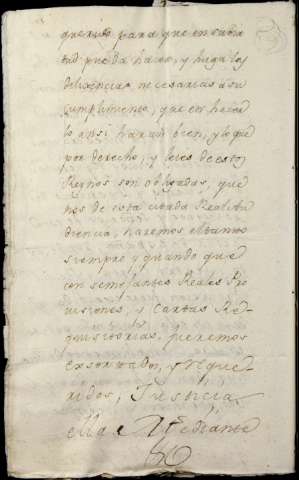 querido para que en su ba
pueda hacer, y haga las
diligencias necesarias á su
cumplimiento, que en hacer
lo ansi harán bien, y lo que
por derecho, y leies de estos
Reynos son obligadas, que
nos de esta citada Real Au
diencia, haremos el tanto
siempre y quando que
con semejantes Reales Pro
visiones, y Cartas Re-
quisitorias, fueremos
exsortados, y reque-
ridos, Justicia
ella mediante